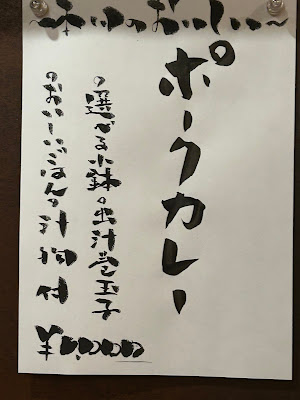 ～本日のおいしい～
ポークカレー
・選べる小鉢・出汁巻玉子
・おいしいごはん・汁物付
¥1,000